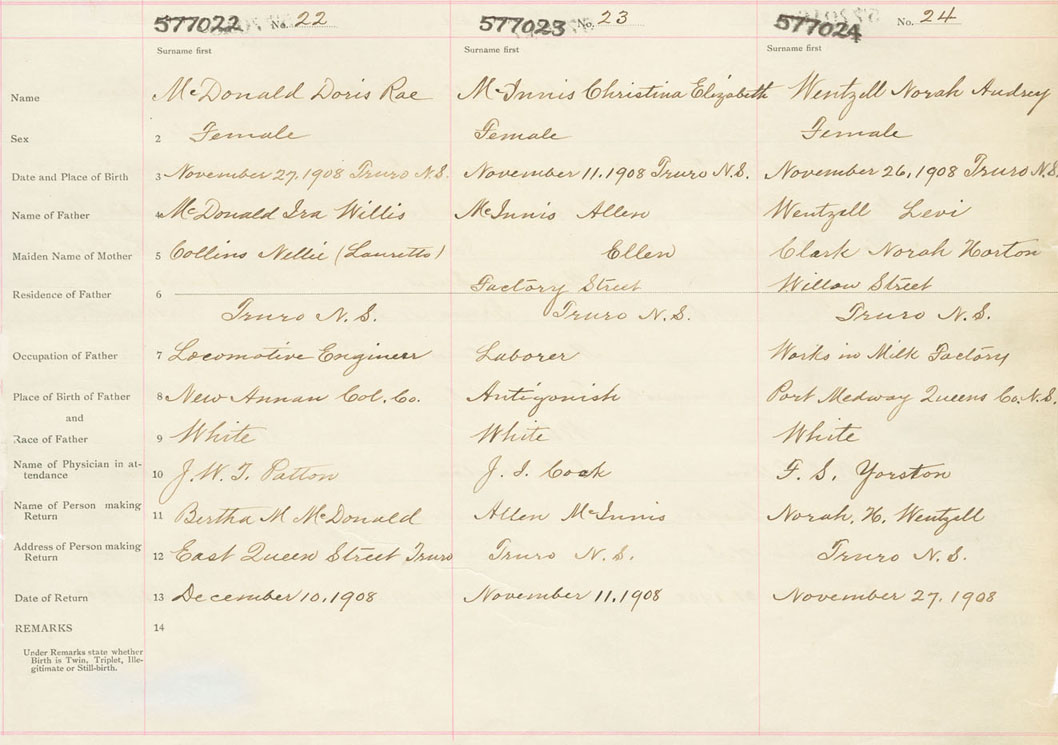 577022 No. 22 577023 No. 23 577024 No. 24
Surname first Surname first Surname first
Name McDonald Doris Rae McInnis Christina Elizabeth Wentzell Norah Audrey
Sex 2 Female Female Female
Date and Place of Birth 3 November 27, 1908 Truro N.S. November 11, 1908 Truro N.S. November 26, 1908 Truro N.S.
Name of Father 4 McDonald Ira Willis McInnis Allen Wentzell Levi
Maiden Name of Mother 5 Collins Nellie (Lauretto) Ellen Clark Norah Horton
Factory Street Willow Street
Residence of Father 6
Truro N.S. Truro N.S. Truro N.S.
Occupation of Father 7 Locomotive Engineer Laborer Works in Milk Factory
Place of Birth of Father 8 New Annan Col. Co. Antigonish Port Medway Queens Co. N.S.
and
Race of Father 9 White White White
Name of Physician in at-
tendance 10 J. W. T. Patton J. I. Cock F. S. Yorston
Name of Person making
Return 11 Bertha M McDonald Allen McInnis Norah. H. Wentzell
Address of Person making
Return 12 East Queen Street Truro Truro N.S. Truro N.S.
Date of Return 13 December 10, 1908 November 11, 1908 November 27, 1908
REMARKS 14
Under Remarks state whether
Birth is Twin, Triplet, Ille-
gitimate or Still-birth.